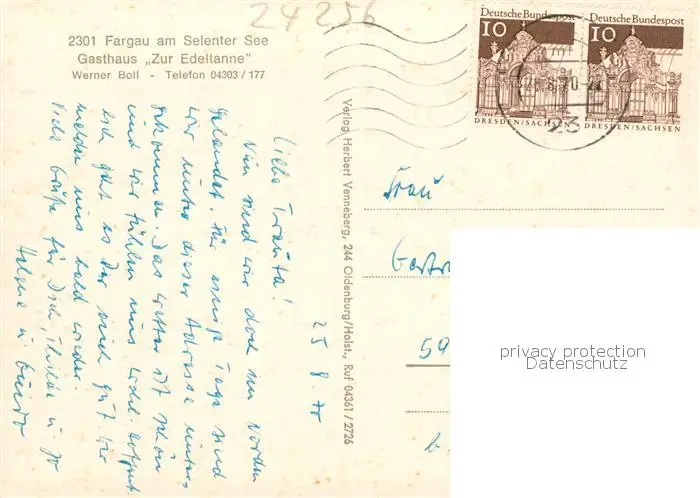 24256
2301 Fargau am Selenter See
Gasthaus „Zur Edeltanne"
Werner Boll - Telefon 04303/177
Deutsche Bundespost
10
DRESDEN/SACHSEN
Deutsche Bundespost
10
DRESDEN/SACHSEN
Verlag Herbert Venneberg, 244 Oldenburg/Holst., Ruf 04361/2726
25.8.70
Liebe Trauta!
Nun sind wir doch im Norden
gelandet. Für einige Tage sind
wir unter dieser Adresse unter-
gekommen. Das Wetter ist schön
und wir fühlen uns wohl. Hoffent-
lich geht es Dir auch gut. Wir
melden uns bald wieder.
Viele Grüße für Dich,
Helene u. Günter
Frau
59
privacy protection
Datenschutz